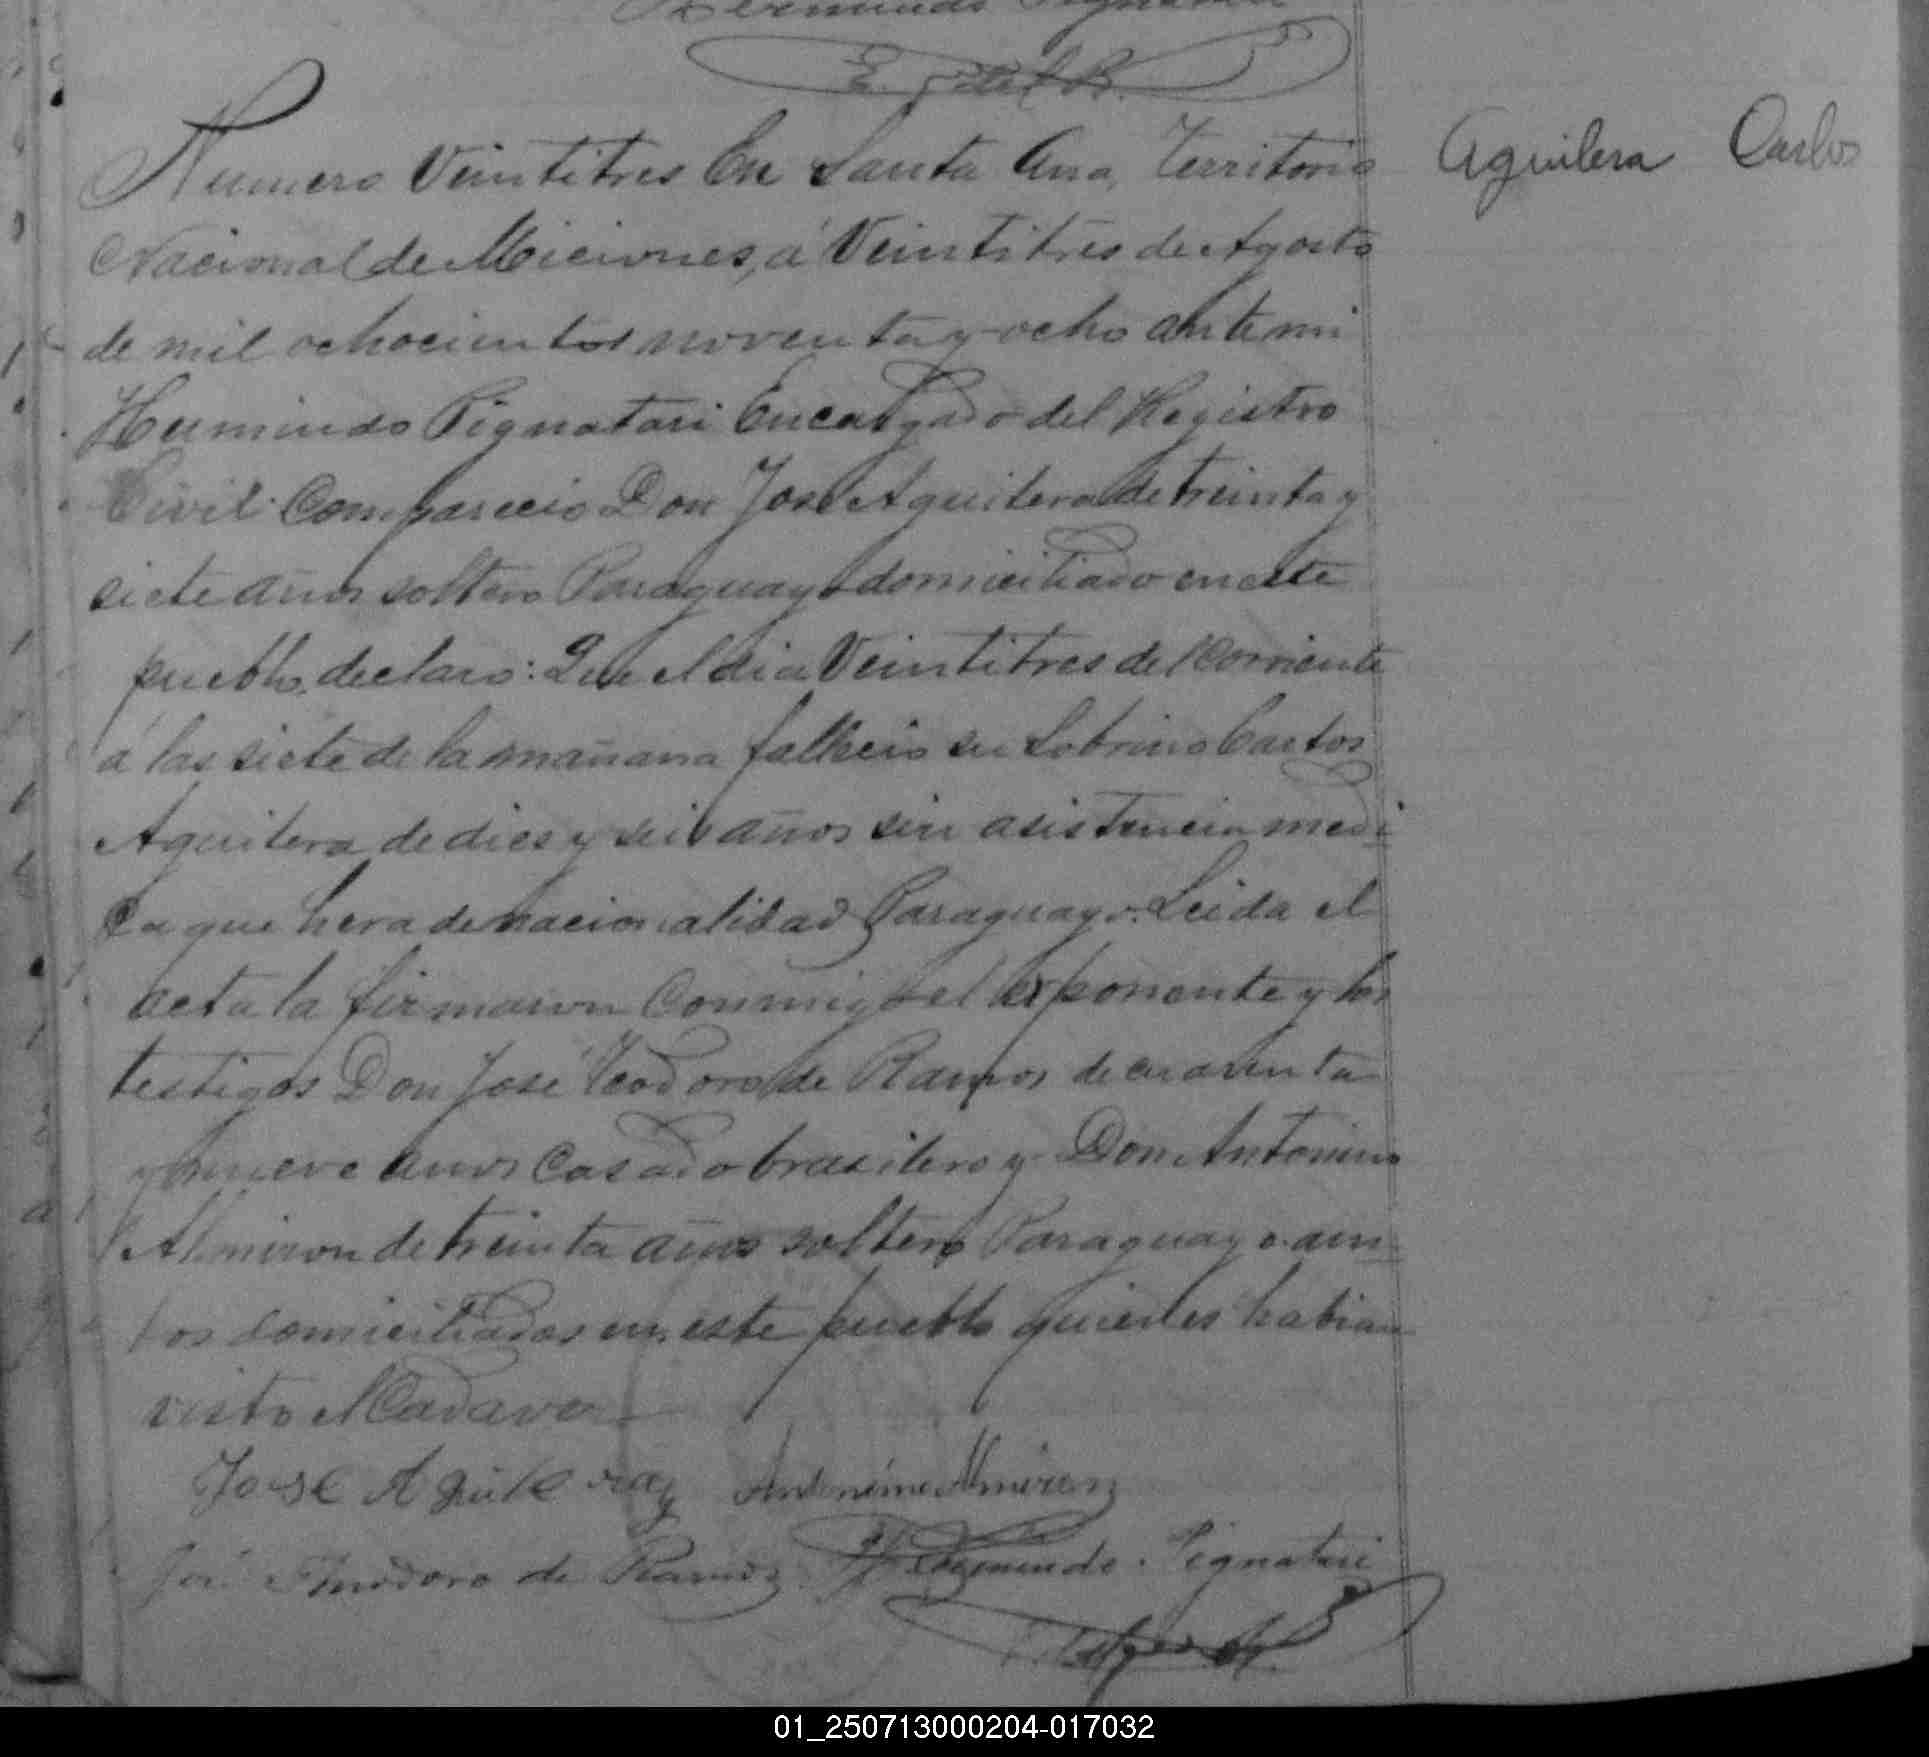 Pignatari
Aguilera Carlos
Numero Veintitres En Santa Ana, Territorio
Nacional de Miciones, á Veintitres de Agosto
de mil ochocientos noventa y ocho ante mi
Hermindo Pignatari Encargado del Registro
Civil Comparecio Don Jose Aguilera de treinta y
siete años soltero Paraguayo domiciliado en este
pueblo, declaro: Que el dia Veintitres del corriente
á las siete de la mañana fallecio su Sobrino Carlos
Aguilera de dies y seis años sin asistencia medi
ca que hera de nacionalidad Paraguayo. Leida el
acta la firmaron conmigo el exponente y los
testigos Don José Teodoro de Ramos de cuarenta
y nueve anos Casado brasilero y Don Antonino
Almiron de treinta años soltero Paraguayo am-
bos domiciliados en este pueblo quienes habian
visto el Cadaver
Jose Aguilera Antonino Almiron
José Theodoro de Ramos Hermindo Pignatari
01_250713000204-017032